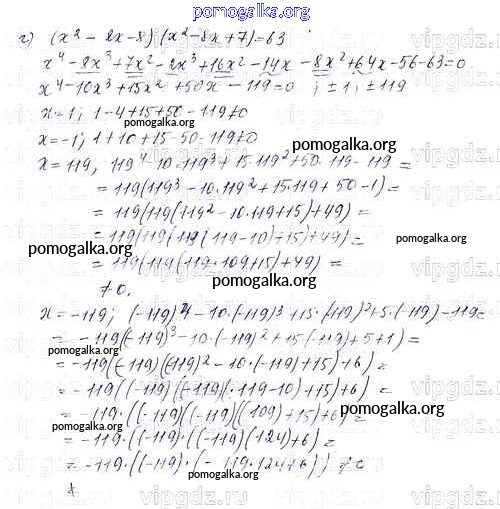 pomogalka.org
г) (x² - 2x - 8)(x² - 8x + 7) = 63
x⁴ - 8x³ + 7x² - 2x³ + 16x² - 14x - 8x² + 64x - 56 - 63 = 0
x⁴ - 10x³ + 15x² + 50x - 119 = 0 ; ±1; ±119
x = 1; 1 - 4 + 15 + 50 - 119 ≠ 0
pomogalka.org
x = -1; 1 + 10 + 15 - 50 - 119 ≠ 0
pomogalka.org
x = 119, 119⁴ - 10·119³ + 15·119² + 50·119 - 119 =
= 119(119³ - 10·119² + 15·119 + 50 - 1) =
= 119(119(119² - 10·119 + 15) + 49) =
= 119(119(119(119 - 10) + 15) + 49) =
pomogalka.org
pomogalka.org
= 119(119(119·109 + 15) + 49) =
≠ 0.
pomogalka.org
x = -119; (-119)⁴ - 10·(-119)³ + 15·(119)² + 5·(-119) - 119 =
= -119(-119)³ - 10·(-119)² + 15(-119) + 5 + 1) =
pomogalka.org
= -119(-119)(-119)² - 10·(-119) + 15) + 6) =
= -119((-119)(-119(-119 - 10) + 15) + 6) =
= -119·((-119)((-119)((109) + 15) + 6) =
pomogalka.org
pomogalka.org
= -119·((-119)·((-119)(124) + 6) =
= -119·((-119)·(-119·124 + 6)) ≠ 0
pomogalka.org
vipgdz.ru